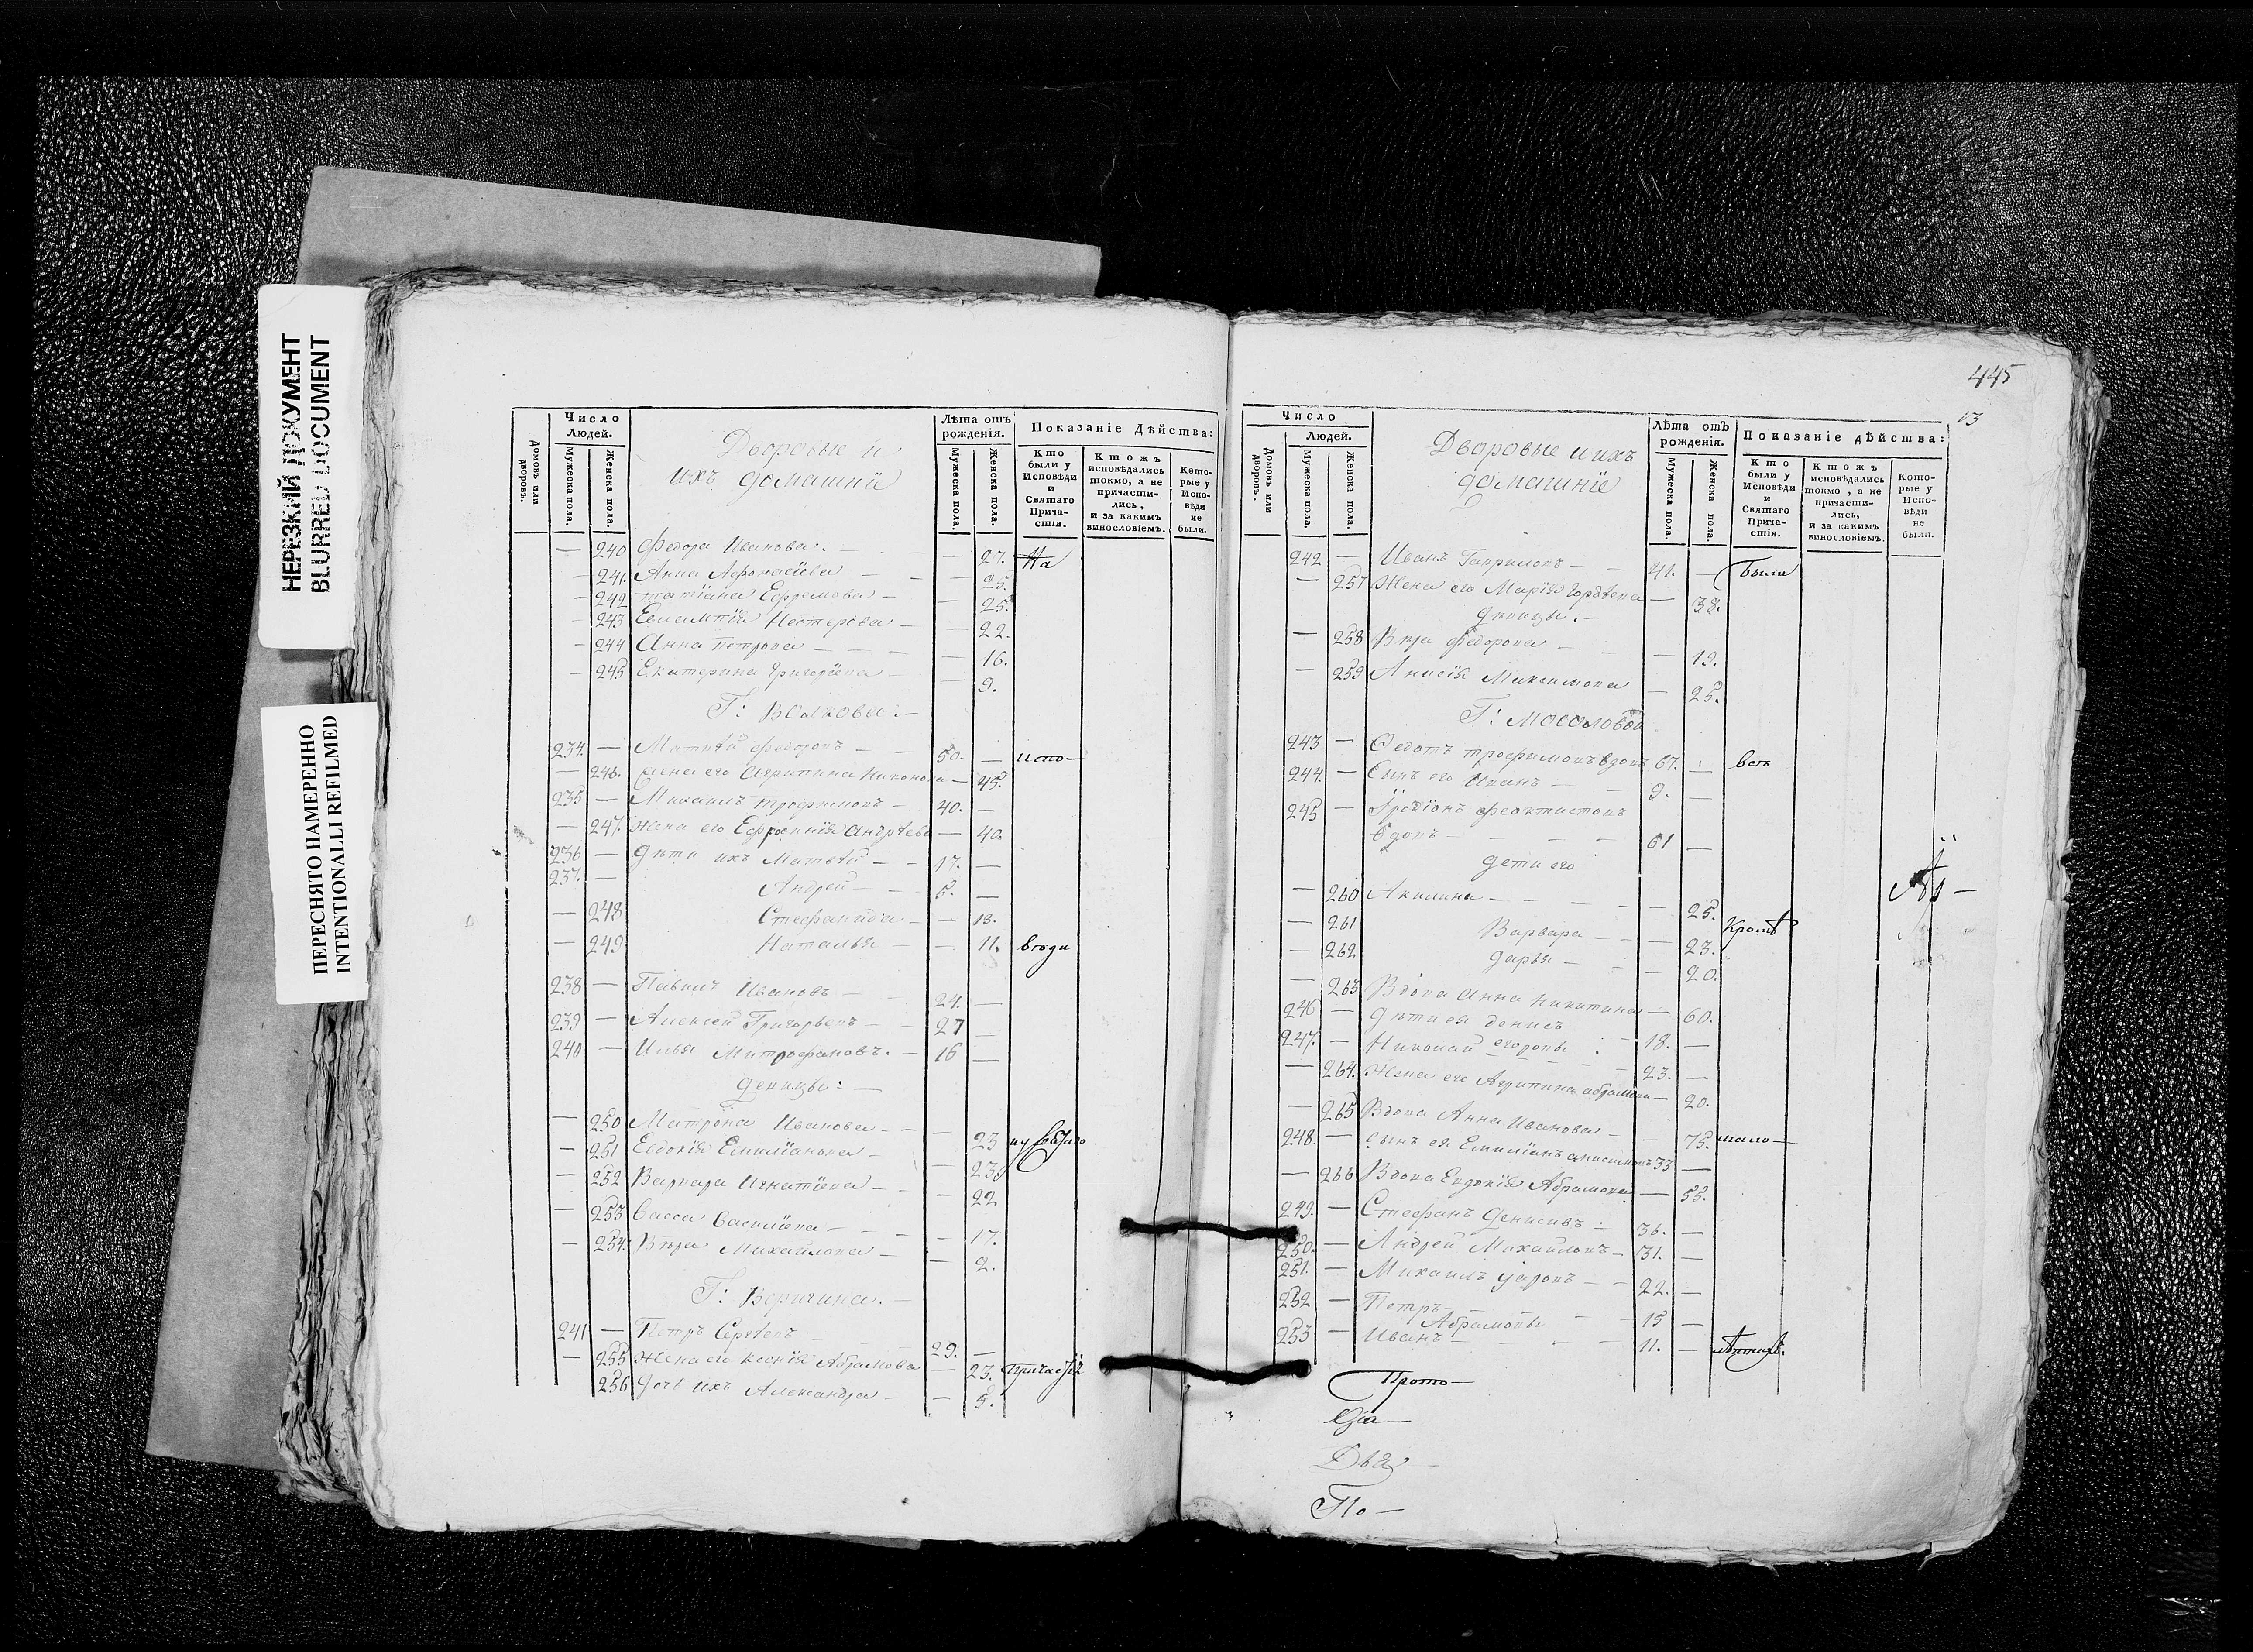 НЕРЕЗКИЙ ДОКУМЕНТ
BLURRED DOCUMENT
ПЕРЕСНЯТО НАМЕРЕННО
INTENTIONALLI REFILMED
Число
Людей.
Домовъ или дворовъ.
Мужеска пола.
Женска пола.
Дворовые и
ихъ домашнiи
Лѣта отъ рожденія.
Мужеска пола.
Женска пола.
Показаніе Дѣйства:
Кто были у Исповѣди и Святаго Прича-стія.
Ктожъ исповѣдались токмо, а не причасти-лись, и за какимъ винословіемъ.
Кото-рые у Испо-вѣди не были.
— 240 Федора Иванова — — 27. На
— 241. Анна Афонасіева — — 25.
— 242 Татіана Ефремова — — 25.
— 243 Евлампія Нестерова — — 22.
— 244 Анна Петрова — — — 16.
— 245 Екатерина Григоріева — — 9.
Г: Волковы: —
234. — Матвѣй Федоровъ — — 50. — испо—
— 246. Жена его Агрипина Никонова — 45.
235 — Михаилъ Трофимовъ — 40. —
— 247. Жена его Ефросинія Андрѣева — 40.
236 — Дѣти ихъ Матвѣй — — 17. —
237. — Андрей — — 5. —
— 248 Стефанида — — 18.
— 249 Наталья — — 11. вѣди
238 — Павелъ Ивановъ — 24. —
239 — Алексей Григорьевъ — — 27 —
240 — Илья Митрофановъ. — 16 —
Девицы: —
— 250 Матрона Иванова — — 23
— 251 Евдокія Емиліанова — — 23
— 252 Варвара Игнатіева — — 22
— 253 Васса Василіева — — 17.
— 254. Вѣра Михайлова — — 2.
241 — Петръ Сергѣевъ — 29. —
— 255 Жена его Ксенія Абрамова — 23. Причастія
256 Дочь ихъ Александра — — 5.
445
13
Число
Людей.
Домовъ или дворовъ.
Мужеска пола.
Женска пола.
Дворовые и ихъ
домашніе
Лѣта отъ рожденія.
Мужеска пола.
Женска пола.
Показаніе дѣйства:
Кто были у Исповѣди и Святаго Прича-стія.
Ктожъ исповѣдались токмо, а не причасти-лись, и за какимъ винословіемъ.
Кото-рые у Испо-вѣди не были.
242 — Иванъ Гавриловъ — — 41. — Были
— 257 Жена его Марія Гордѣева — 38.
Дѣвицы. —
— 258 Вѣра Федорова — — 19.
— 259 Анисія Максимова — 25.
Г: Мосоловой
243 — Федотъ Трофимовъ вдовъ 67. — всѣ
244. — Сынъ его Иванъ — — 9. —
245 — Иродіонъ Феоктистовъ
вдовъ — — — 61 —
Дети его
— 260 Акилина — — — — 25.
— 261 Варвара — — 23. Кромѣ
— 262 Дарья — — — 20.
— 263 Вдова Анна Никитина — 60.
246 — Дѣти ея Денисъ — 18. —
247. — Николай Егоровы — 23. —
— 264. Жена его Агрипина Абрамова — 20.
— 265 Вдова Анна Иванова — — 75. мало—
248. — Сынъ ея Емиліанъ Анисимовъ 33 —
— 266 Вдова Евдокія Абрамова — 55.
249. — Стефанъ Денисовъ — 36. —
250. — Андрей Михайловъ — 31. —
251. — Михаилъ Уаровъ — — 22. —
252 — Петръ — — 15 —
Абрамовы
253 — Иванъ — — — 11. — лѣтныхъ.
Прото—
Два —
По —